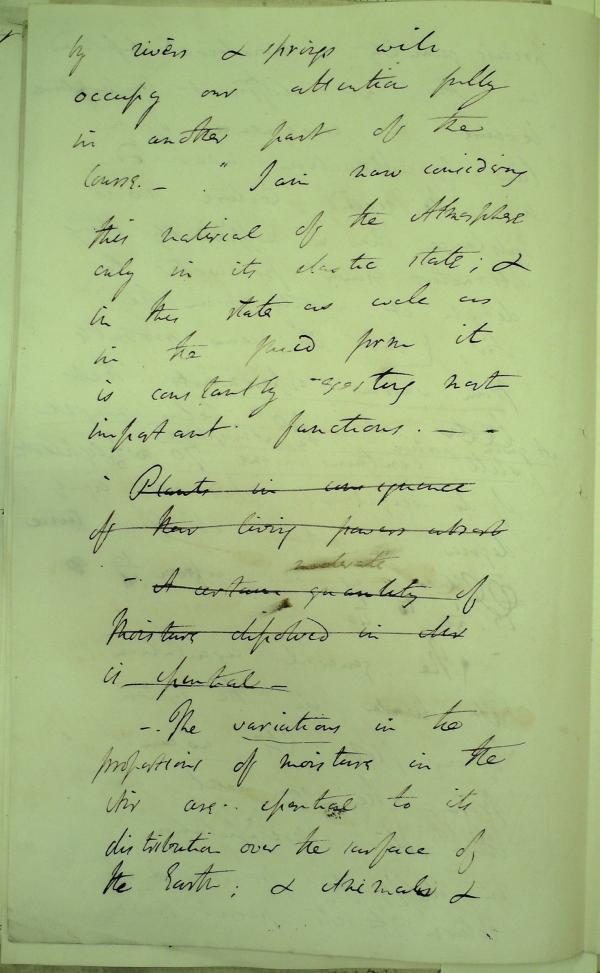 by rivers & springs will
occupy our attention fully
in another part of the
course. — . " I am now considering
this material of the Atmosphere
only in its elastic state; &
in this state as well as
in the fluid form it
is constantly exerting most
important functions. — -
Plants in consequence
of their living powers absorb
moderate
- A certain quantity of
Moisture dissolved in Air
is essential -
-. The variations in the
proportions of moisture in the
Air are essential to its
distribution over the surface of
the Earth; & Animals &